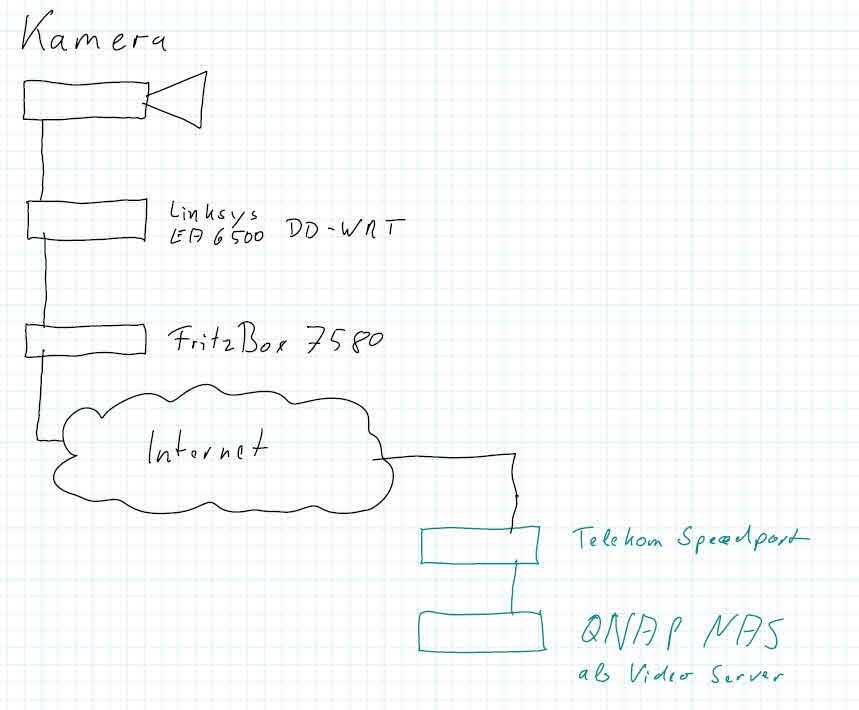 Kamera
Linksys
EA6500 DD-WRT
FritzBox 7580
Internet
Telekom Speedport
QNAP NAS
als Video Server